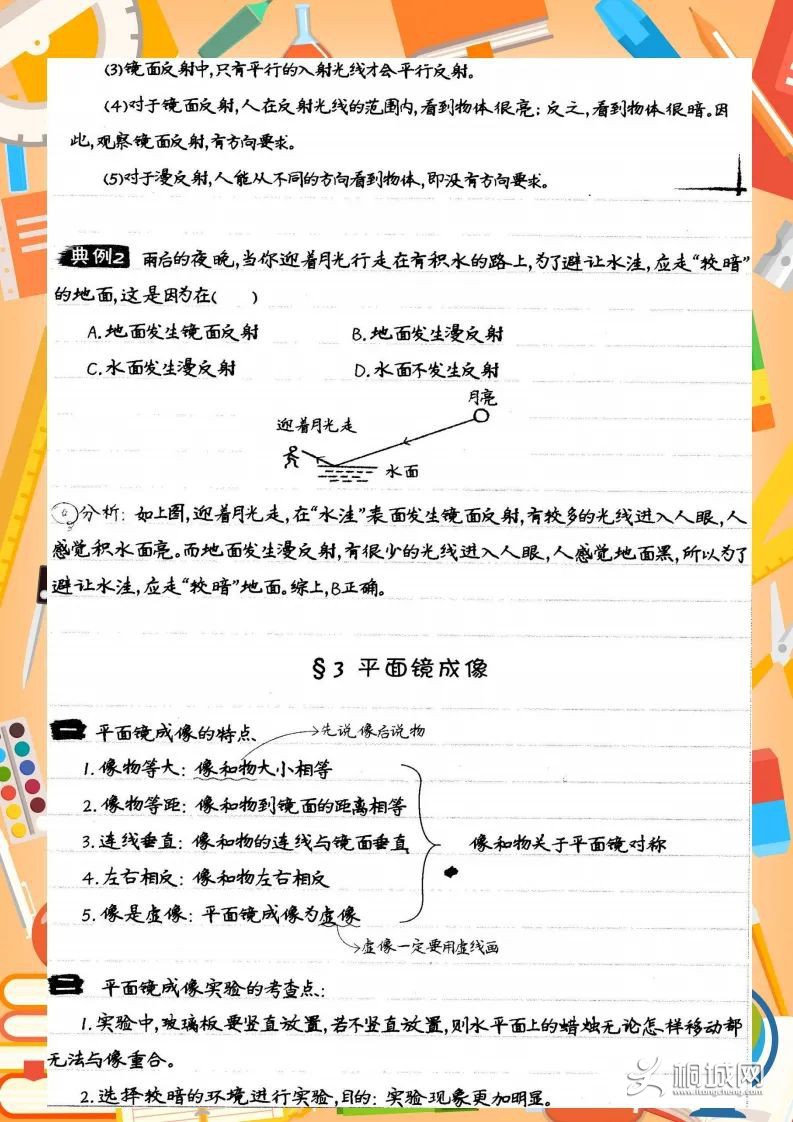 (3)镜面反射中,只有平行的入射光线才会平行反射。
(4)对于镜面反射,人在反射光线的范围内,看到物体很亮;反之,看到物体很暗。因
此,观察镜面反射,有方向要求。
(5)对于漫反射,人能从不同的方向看到物体,即没有方向要求。
典例2 雨后的夜晚,当你迎着月光行走在有积水的路上,为了避让水洼,应走“较暗”
的地面,这是因为在( )
A.地面发生镜面反射 B.地面发生漫反射
C.水面发生漫反射 D.水面不发生反射
月亮
迎着月光走
水面
分析:如上图,迎着月光走,在“水洼”表面发生镜面反射,有较多的光线进入人眼,人
感觉积水面亮。而地面发生漫反射,有很少的光线进入人眼,人感觉地面黑,所以为了
避让水洼,应走“较暗”地面。综上,B正确。
§3 平面镜成像
一 平面镜成像的特点 先说像后说物
1.像物等大:像和物大小相等
2.像物等距:像和物到镜面的距离相等
3.连线垂直:像和物的连线与镜面垂直 像和物关于平面镜对称
4.左右相反:像和物左右相反
5.像是虚像:平面镜成像为虚像
虚像一定要用虚线画
二 平面镜成像实验的考查点:
1.实验中,玻璃板要竖直放置,若不竖直放置,则水平面上的蜡烛无论怎样移动都
无法与像重合。
2.选择较暗的环境进行实验,目的:实验现象更加明显。
桐城网
www.itongcheng.com